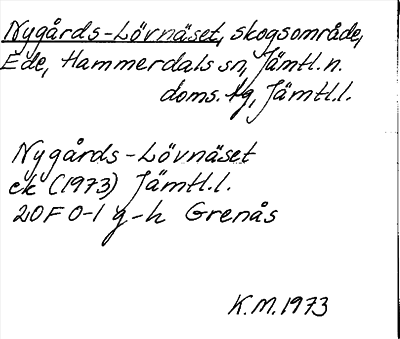 Nygårds-Lövnäset, skogsområde,
Ede, Hammerdals sn, Jämtl.n.
doms. tg, Jämtl.l.
Nygårds-Lövnäset
ek (1973) Jämtl.l.
20F 0-1 g-h Grenås
K.M. 1973